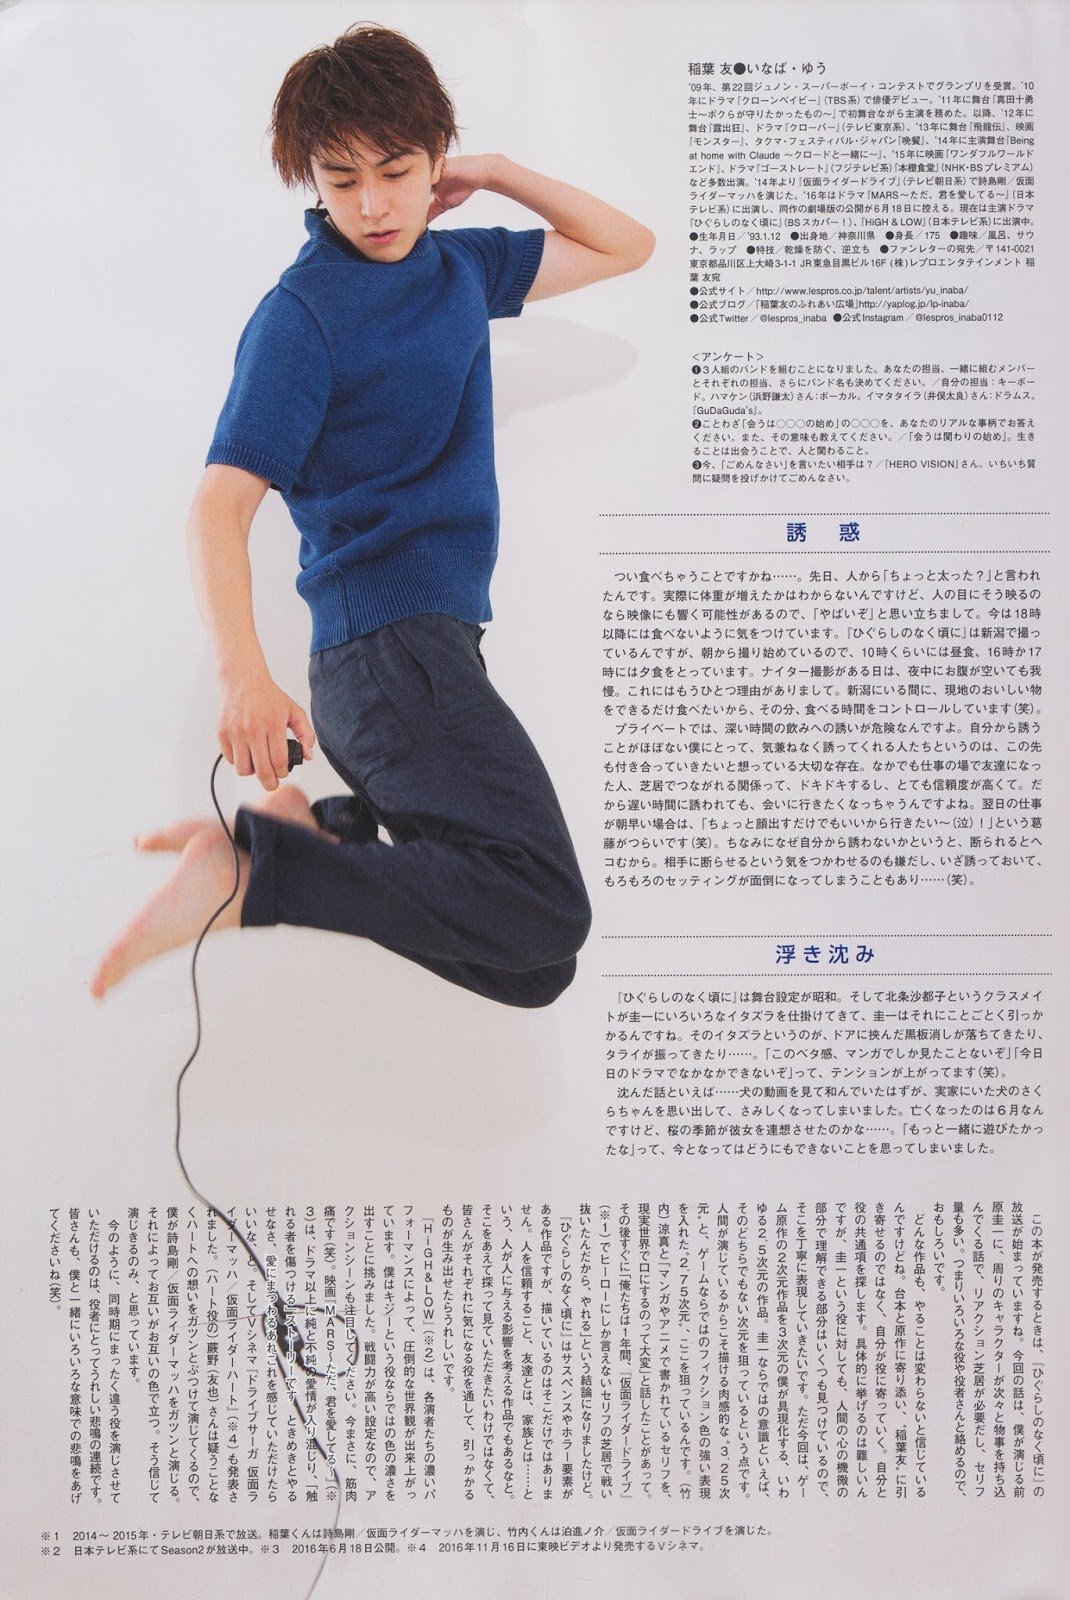 稲葉 友●いなば・ゆう
'09年、第22回ジュノン・スーパーボーイ・コンテストでグランプリを受賞。'10
年にドラマ『クローンベイビー』(TBS系)で俳優デビュー。'11年に舞台『真田十勇
士〜ボクらが守りたかったもの〜』で初舞台ながら主演を務めた。以降、'12年に
舞台『露出狂』、ドラマ『クローバー』(テレビ東京系)、'13年に舞台『飛龍伝』、映画
『モンスター』、タクマ・フェスティバル・ジャパン『晩餐』、'14年に主演舞台『Being
at home with Claude 〜クロードと一緒に〜』、'15年に映画『ワンダフルワールド
エンド』、ドラマ『ゴーストレート』(フジテレビ系)『本棚食堂』(NHK・BSプレミアム)
など多数出演。'14年より『仮面ライダードライブ』(テレビ朝日系)で詩島剛／仮面
ライダーマッハを演じた。'16年はドラマ『MARS〜ただ、君を愛してる〜』(日本
テレビ系)に出演し、同作の劇場版の公開が6月18日に控える。現在は主演ドラマ
『ひぐらしのなく頃に』(BSスカパー！)、『HiGH & LOW』(日本テレビ系)に出演中。
●生年月日／'93.1.12 ●出身地／神奈川県 ●身長／175 ●趣味／風呂、サウ
ナ、ラップ ●特技／乾燥を防ぐ、逆立ち ●ファンレターの宛先／〒141-0021
東京都品川区上大崎3-1-1 JR東急目黒ビル16F (株)レプロエンタテインメント 稲
葉 友宛
●公式サイト／http://www.lespros.co.jp/talent/artists/yu_inaba/
●公式ブログ／「稲葉友のふれあい広場」http://yaplog.jp/lp-inaba/
●公式Twitter／@lespros_inaba ●公式Instagram／@lespros_inaba0112
＜アンケート＞
❶3人組のバンドを組むことになりました。あなたの担当、一緒に組むメンバー
とそれぞれの担当、さらにバンド名も決めてください。／自分の担当：キーボー
ド。ハマケン(浜野謙太)さん：ボーカル。イマタタイラ(井俣太良)さん：ドラムス。
『GuDaGuda's』。
❷ことわざ「会うは○○○の始め」の○○○を、あなたのリアルな事柄でお答え
ください。また、その意味も教えてください。／「会うは関わりの始め」。生き
ることは出会うことで、人と関わること。
❸今、「ごめんなさい」を言いたい相手は？／『HERO VISION』さん。いちいち質
問に疑問を投げかけてごめんなさい。
誘 惑
つい食べちゃうことですかね……。先日、人から「ちょっと太った？」と言われ
たんです。実際に体重が増えたかはわからないんですけど、人の目にそう映るの
なら映像にも響く可能性があるので、「やばいぞ」と思い立ちまして。今は18時
以降には食べないように気をつけています。『ひぐらしのなく頃に』は新潟で撮っ
ているんですが、朝から撮り始めているので、10時くらいには昼食、16時か17
時には夕食をとっています。ナイター撮影がある日は、夜中にお腹が空いても我
慢。これにはもうひとつ理由がありまして。新潟にいる間に、現地のおいしい物
をできるだけ食べたいから、その分、食べる時間をコントロールしています(笑)。
プライベートでは、深い時間の飲みへの誘いが危険なんですよ。自分から誘う
ことがほぼない僕にとって、気兼ねなく誘ってくれる人たちというのは、この先
も付き合っていきたいと想っている大切な存在。なかでも仕事の場で友達になっ
た人、芝居でつながれる関係って、ドキドキするし、とても信頼度が高くて。だ
から遅い時間に誘われても、会いに行きたくなっちゃうんですよね。翌日の仕事
が朝早い場合は、「ちょっと顔出すだけでもいいから行きたい〜(泣)！」という葛
藤がつらいです(笑)。ちなみになぜ自分から誘わないかというと、断られるとヘ
コむから。相手に断らせるという気をつかわせるのも嫌だし、いざ誘っておいて、
もろもろのセッティングが面倒になってしまうこともあり……(笑)。
浮き沈み
『ひぐらしのなく頃に』は舞台設定が昭和。そして北条沙都子というクラスメイ
トが圭一にいろいろなイタズラを仕掛けてきて、圭一はそれにことごとく引っか
かるんですね。そのイタズラというのが、ドアに挟んだ黒板消しが落ちてきたり、
タライが振ってきたり……。「このベタ感、マンガでしか見たことないぞ」「今日
日のドラマでなかなかできないぞ」って、テンションが上がってます(笑)。
沈んだ話といえば……犬の動画を見て和んでいたはずが、実家にいた犬のさく
らちゃんを思い出して、さみしくなってしまいました。亡くなったのは6月なん
ですけど、桜の季節が彼女を連想させたのかな……。「もっと一緒に遊びたかっ
たな」って、今となってはどうにもできないことを思ってしまいました。
この本が発売するときは、『ひぐらしのなく頃に』の
放送が始まっていますね。今回の話は、僕が演じる前
原圭一に、周りのキャラクターが次々と物事を持ち込
んでくる話で、リアクション芝居が必要だし、セリフ
量も多い。つまりいろいろな役や役者さんと絡めるので、
おもしろいです。
どんな作品も、やることは変わらないと信じている
んですけどね。台本と原作に寄り添い、“稲葉友”に引
き寄せるのではなく、自分が役に寄っていく。自分と
役の共通項を探します。具体的に挙げるのは難しいん
ですが、圭一という役に対しても、人間の心の機微の
部分で理解できる部分はいくつも見つけているので、
そこを丁寧に表現していきたいです。ただ今回は、ゲー
ム原作の2次元作品を3次元の僕が具現化する、いわ
ゆる2.5次元の作品。圭一ならではの意識といえば、
そのどちらでもない次元を狙っているという点です。
人間が演じているからこそ描ける肉感的な“3.25次
元”と、ゲームならではのフィクション色の強い表現
を入れた“2.75次元”、ここを狙っているんです。(竹
内)涼真と「マンガやアニメで書かれているセリフを、
現実世界で口にするのって大変」と話したことがあって。
その後すぐに「俺たちは1年間、『仮面ライダードライブ』
(※1)でヒーローにしか言えないセリフの芝居で戦い
抜いたんだから、やれる」という結論になりましたけど。
『ひぐらしのなく頃に』はサスペンスやホラー要素が
ある作品ですが、描いているのはそこだけではありま
せん。人を信頼すること、友達とは、家族とは……と
いう、人が人に与える影響を考える作品でもあるなと。
そこをあえて探って見ていただきたいわけではなくて、
皆さんがそれぞれに気になる役を通して、引っかかる
ものが生み出せたらうれしいです。
『HiGH&LOW』(※2)は、各演者たちの濃いパ
フォーマンスによって、圧倒的な世界観が出来上がっ
ています。僕はキジーという役ならではの色の濃さを
出すことに挑みました。戦闘力が高い設定なので、ア
クションシーンも注目してください。今まさに、筋肉
痛です(笑)。映画『MARS〜ただ、君を愛してる〜』(※
3)は、ドラマ以上に純と不純の愛情が入り混じり、「触
れる者を傷つける」ストーリーです。ときめきとやる
せなさ、愛にまつわるあれこれを感じていただけたら
いいなと。そしてVシネマ『ドライブサーガ 仮面ラ
イダーマッハ／仮面ライダーハート』(※4)も発表さ
れました。(ハート役の)蕨野(友也)さんは疑うことな
くハートへの想いをガツンとぶつけて演じてくるので、
僕が詩島剛／仮面ライダーマッハをガツンと演じる。
それによってお互いがお互いの色で立つ。そう信じて
演じきるのみ、と思っています。
今のように、同時期にまったく違う役を演じさせて
いただけるのは、役者にとってうれしい悲鳴の連続です。
皆さんも、僕と一緒にいろいろな意味での悲鳴をあげ
てくださいね(笑)。
※1 2014〜2015年・テレビ朝日系で放送。稲葉くんは詩島剛／仮面ライダーマッハを演じ、竹内くんは泊進ノ介／仮面ライダードライブを演じた。
※2 日本テレビ系にてSeason2が放送中。※3 2016年6月18日公開。※4 2016年11月16日に東映ビデオより発売するVシネマ。